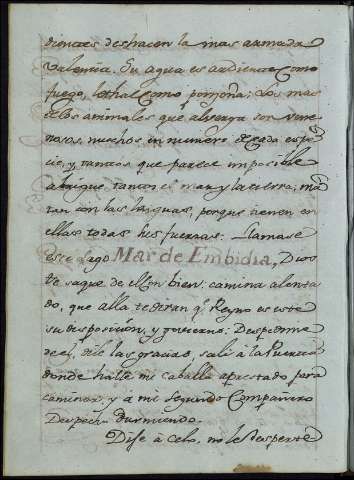 dientes deshacen la mas armada
Valentia. Su agua es ardiente Como
fuego, lethal Como ponzoña; Los mas
de los animales que alverga son vene-
nosos, muchos en numero de cada espe-
cie, y tantos que parece imposible
abrigue tantos el mar y la tierra, ma-
tan con las lenguas, porque tienen en
ellas todas sus fuerzas. Llamase
este Lago Mar de Embidia, Dios
te saque de el con bien. camina alenta-
do, que alla te diran q.e Reyno es este
su desposicion, y govierno. Despedime
de el, dile las gracias, sali à la Puerta
donde halle mi caballo aprestado para
caminar, y a mi segundo Compañero
Despecho durmiendo.
Dije à Celo, no le desperte